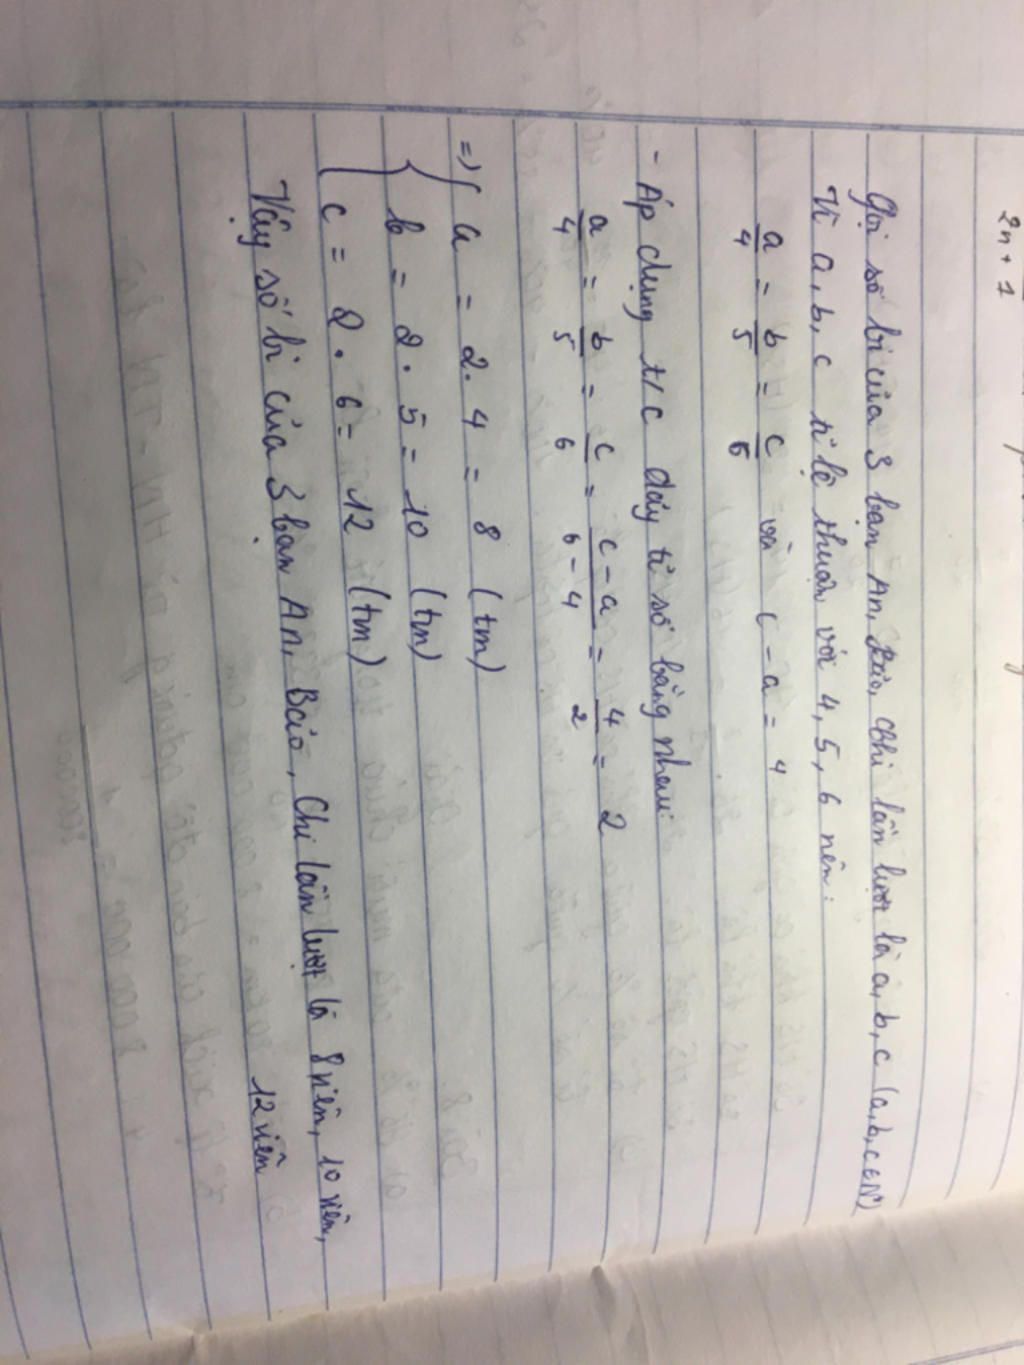 2n + 1
Gọi số bi của 3 bạn An, Bảo, Chi lần lượt là a, b, c (a,b,c∈N*)
Vì a, b, c tỉ lệ thuận với 4, 5, 6 nên:
a/4 = b/5 = c/6 và c - a = 4
- Áp dụng t/c dãy tỉ số bằng nhau:
a/4 = b/5 = c/6 = c - a/6 - 4 = 4/2 = 2
=> { a = 2 . 4 = 8 (tm)
b = 2 . 5 = 10 (tm)
c = 2 . 6 = 12 (tm)
Vậy số bi của 3 bạn An, Bảo, Chi lần lượt là 8 viên, 10 viên,
12 viên